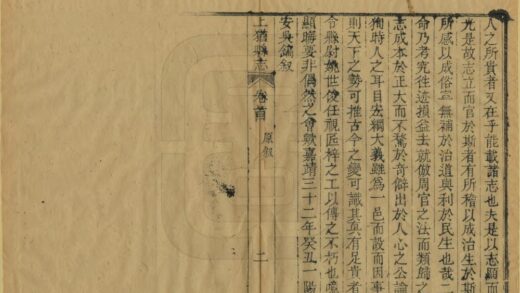 人之所貴者又在乎能載諸志也夫是以志顯而
光是故志立而官於斯者有所稽以成治生於斯
所感以成俗豈無補於治道與利於民生也哉二
命乃考究往迹損益去就倣周官之法而類歸之
志成本於正大而不騖於奇僻出於人心之公論
徇時人之耳目宏綱大義雖為一邑而設而因事
則天下之勢可推古今之變可識其真有足貴者
令縣尉姚世俊任視匠梓之工以傳之不朽也
顯晦要非偶然之會歟嘉靖三十二年癸丑一陽
安吳鎬叙
上猶縣志 卷首 原叙 二